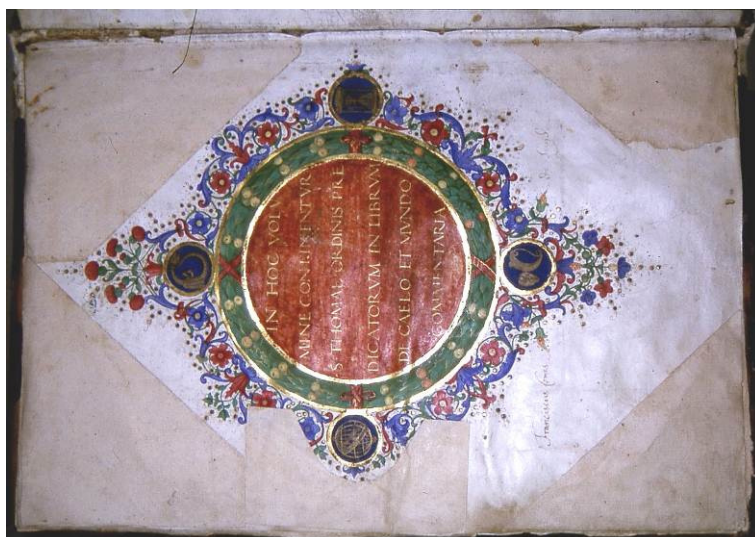 IN HOC VOLV
MINE CONTINENTVR
S THOMAE ORDINIS PRE
DICATORVM IN LIBRVM
DE CAELO ET MVNDO
COMMENTARIA